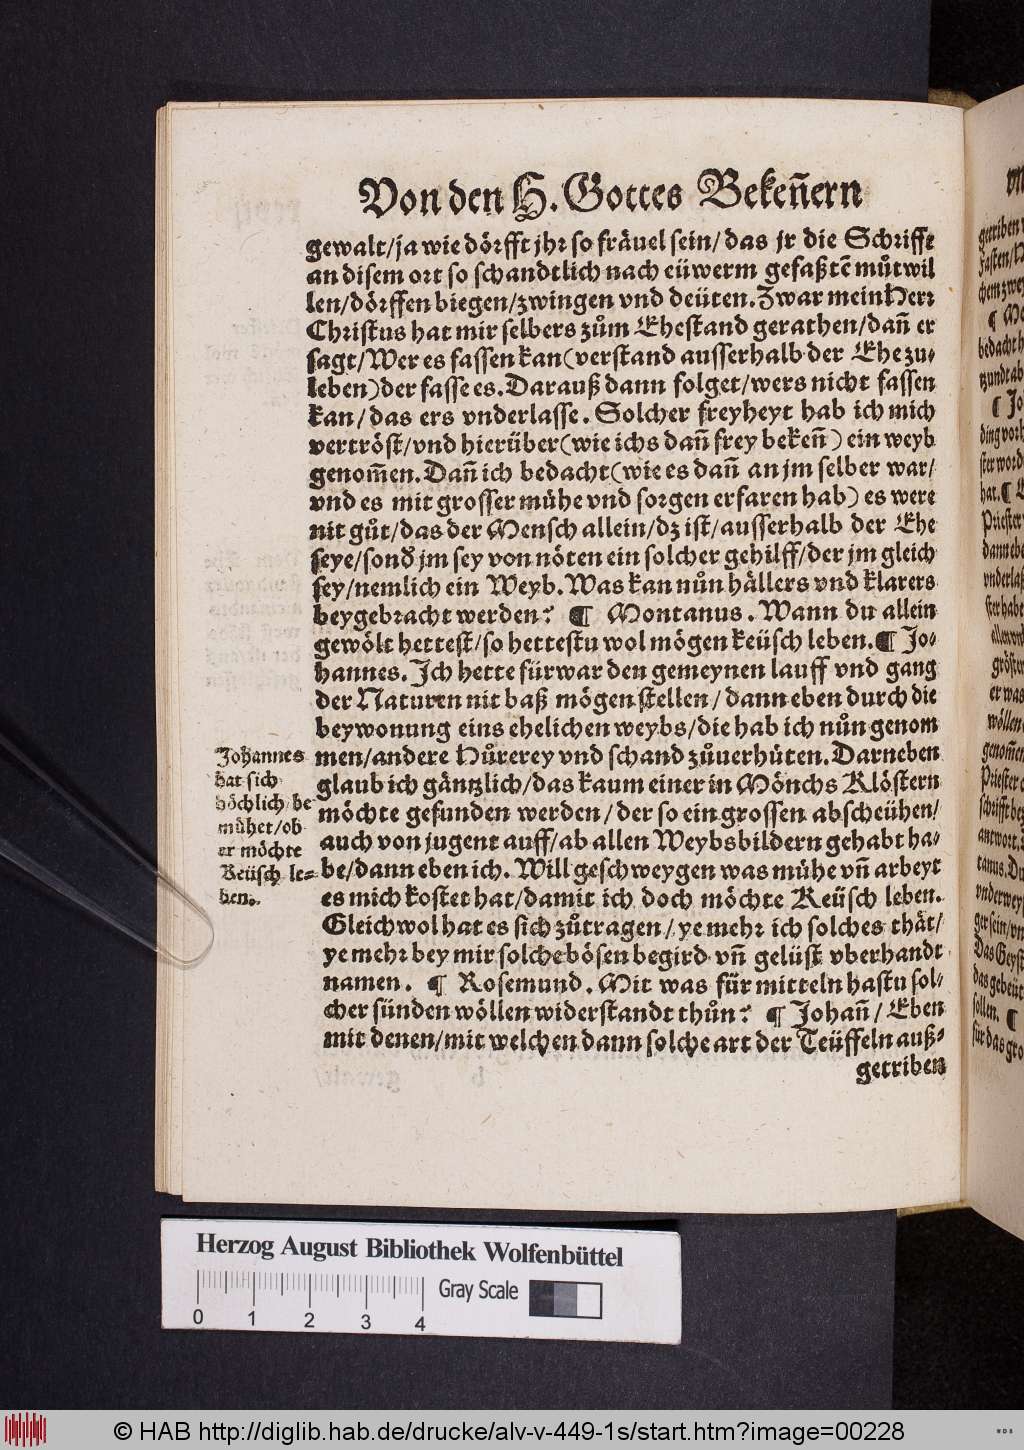 Von den H. Gottes Bekeñern
gewalt/ja wie dörfft jhr so fräuel sein/das jr die Schrifft
an disem ort so schandtlich nach eüwerm gefaßtẽ můtwil
len/dörffen biegen/zwingen vnd deüten. Zwar mein Herr
Christus hat mir selbers zům Ehestand gerathen/dañ er
sagt/Wer es fassen kan(verstand ausserhalb der Ehe zu⸗
leben)der fasse es. Darauß dann folget/wers nicht fassen
kan/das ers vnderlasse. Solcher freyheyt hab ich mich
vertröst/vnd hierüber(wie ichs dañ frey bekeñ) ein weyb
genom̃en. Dañ ich bedacht(wie es dañ an jm selber war/
vnd es mit grosser mühe vnd sorgen erfaren hab) es were
nit gůt/das der Mensch allein/dz ist/ausserhalb der Ehe
seye/sonđ jm sey von nöten ein solcher gehilff/der jm gleich
sey/nemlich ein Weyb. Was kan nůn hällers vnd klarers
beygebracht werden? ¶ Montanus. Wann du allein
gewölt hettest/so hettestu wol mögen keüsch leben. ¶ Jo⸗
hannes. Ich hette fürwar den gemeynen lauff vnd gang
der Naturen nit baß mögen stellen/dann eben durch die
beywonung eins ehelichen weybs/die hab ich nůn genom
men/andere Hůrerey vnd schand zůuerhüten. Darneben
glaub ich gäntzlich/das kaum einer in Mönchs Klöstern
möchte gefunden werden/der so ein grossen abscheühen/
auch von jugent auff/ab allen Weybsbildern gehabt ha⸗
be/dann eben ich. Will geschweygen was mühe vñ arbeyt
es mich kostet hat/damit ich doch möchte Keüsch leben.
Gleichwol hat es sich zůtragen/ye mehr ich solches thät/
ye mehr bey mir solche bösen begird vñ gelüst vberhandt
namen. ¶ Rosemund. Mit was für mitteln hastu sol⸗
cher sünden wöllen widerstandt thůn? ¶ Johañ/Eben
mit denen/mit welchen dann solche art der Teüffeln auß⸗
getriben
Johannes
hat sich
höchlich be
mühet/ob
er möchte
Keüsch le⸗
ben.
Herzog August Bibliothek Wolfenbüttel
Gray Scale
0 1 2 3 4
© HAB http://diglib.hab.de/drucke/alv-v-449-1s/start.htm?image=00228